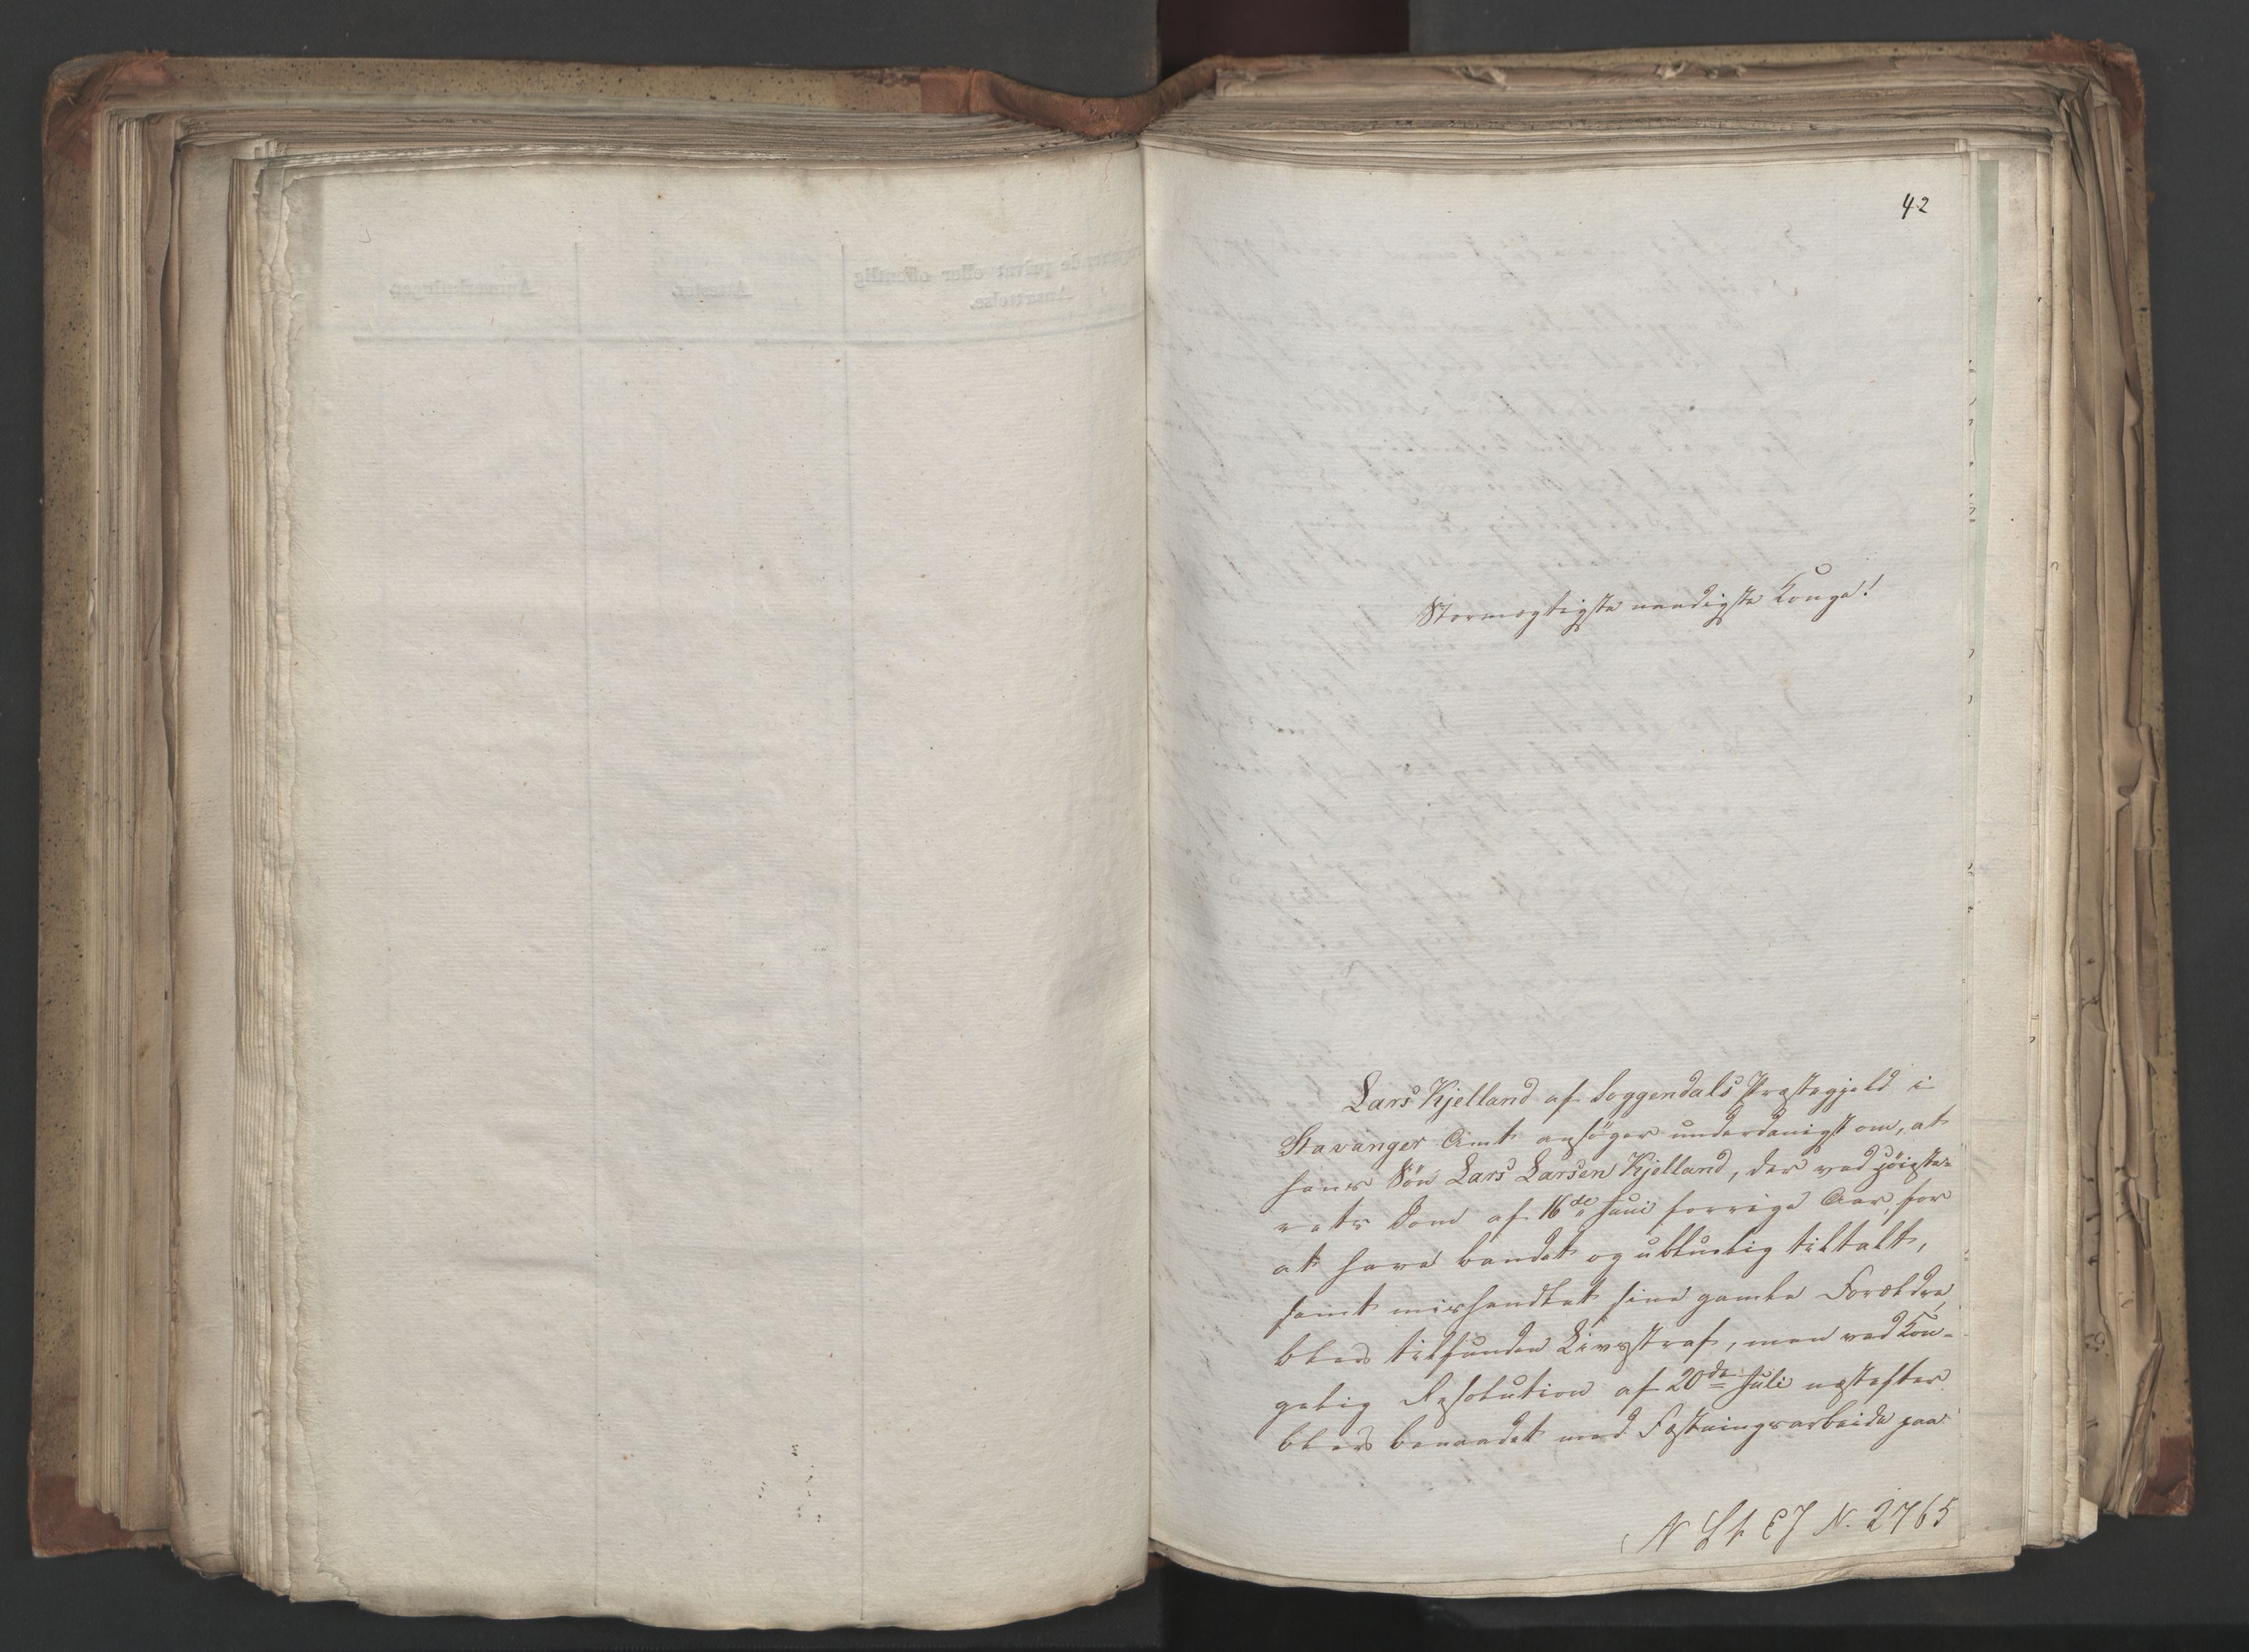 42
Stormægtigste naadigste Konge!
Lars Kjelland af Soggendals Præstegjeld i
Stavanger Amt ansöger underdanigst om, at
hans Sön Lars Larsen Kjelland, der ved Höieste-
rets Dom af 16de Juni forrige Aar, for
at have bandet og ublueligt tiltalt,
samt mishandlet sine gamle Forældre,
blev tilfunden Livsstraf, men ved Kon-
gelig Resolution af 20de Juli næstefter
blev benaadet med Fæstningsarbeide paa
N. 2765